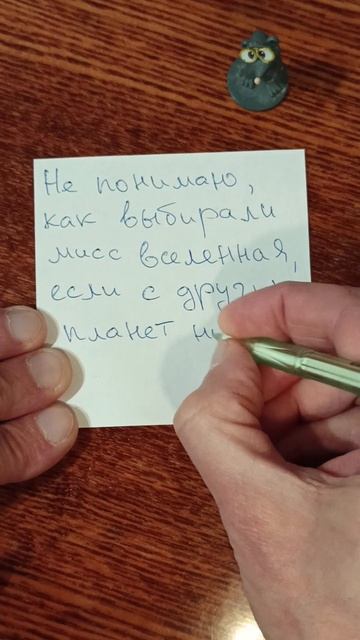 Не понимаю,
как выбирали
мисс вселенная,
если с
планет